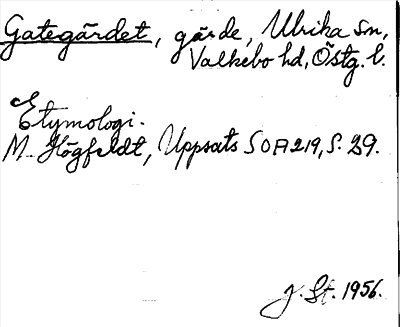 Gategärdet, gärde, Ulrika sn,
Valkebo hd, Östg. l.
Etymologi.
M. Högfeldt, Uppsats SOA 219, S. 29.
J. St. 1956.